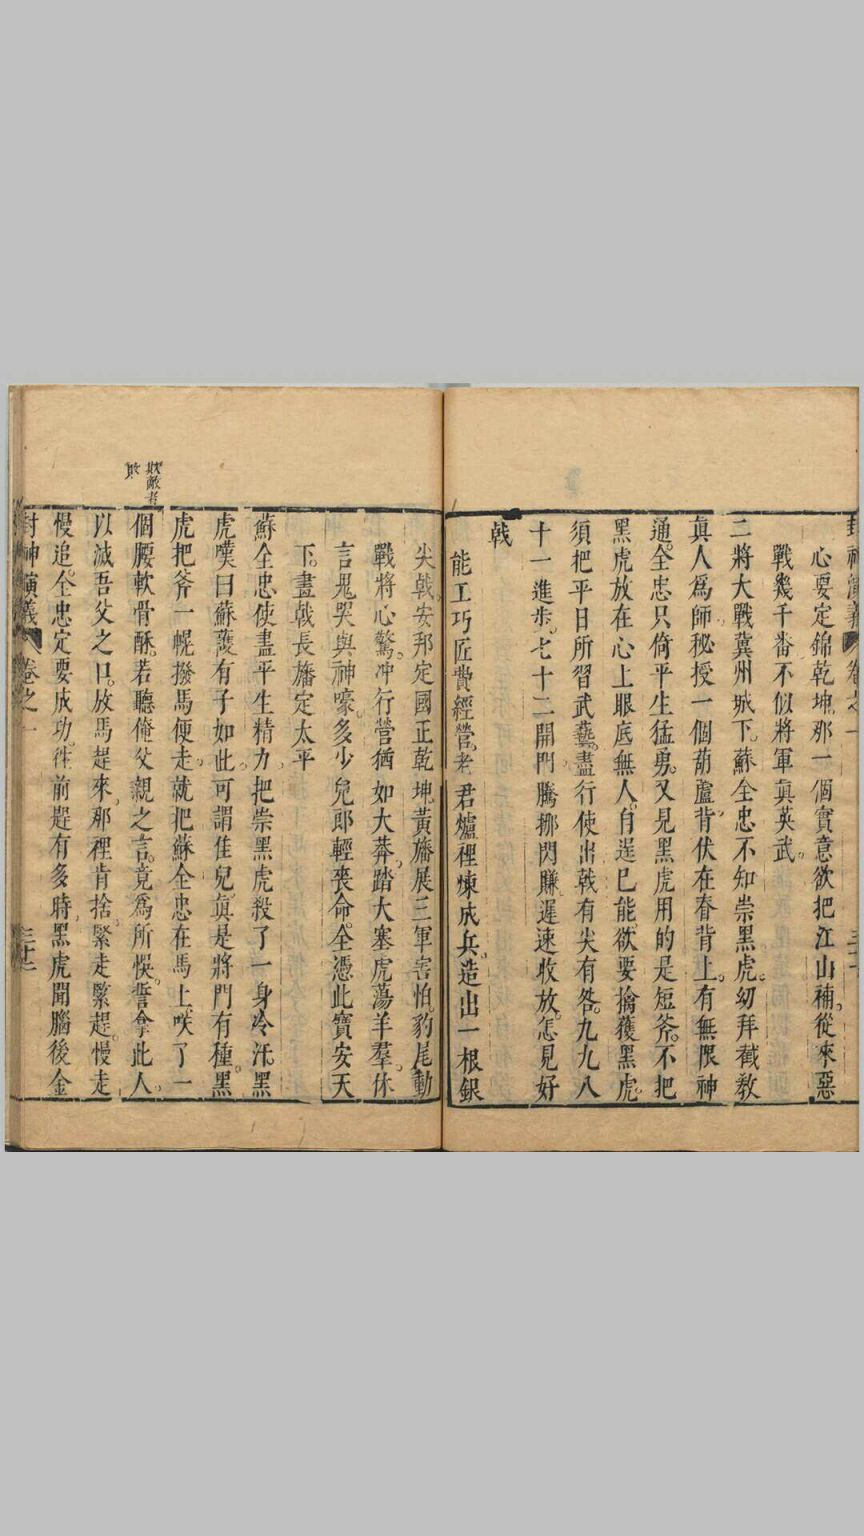 封神演義 卷之一
心要定錦乾坤那一個實意欲把江山補。從來惡
戰幾千番不似將軍真英武。
二將大戰冀州城下。蘇全忠不知崇黑虎。幼拜截教
真人爲師。秘授一個葫蘆。背伏在脊背上。有無限神
通。全忠只倚平生猛勇。又見黑虎用的是短斧。不把
黑虎放在心上眼底無人。自逞已能。欲要擒獲黑虎。
須把平日所習武藝。盡行使出戟有尖有咎。九九八
十一進步。七十二開門。騰挪閃賺。遲速收放。怎見好
戟
能工巧匠費經營。老君爐裡煉成兵。造出一根銀
尖戟。安邦定國正乾坤。黃旛展三軍害怕。豹尾動
戰將心驚。冲行營猶如大莽。踏大寨虎蕩羊羣。休
言鬼哭與神嚎。多少兒郎輕喪命。全憑此寶安天
下。畫戟長旛定太平
蘇全忠使盡平生精力。把崇黑虎殺了一身冷汗。黑
虎嘆曰蘇護有子如此。可謂佳兒。眞是將門有種。黑
虎把斧一幌撥馬便走。就把蘇全忠在馬上咲了一
個腰軟骨酥。若聽俺父親之言。竟爲所悞。誓拿此人。
以滅吾父之口。放馬趕來。那裡肯捨。緊走緊趕。慢走
慢追。全忠定要成功。徃前趕有多時。黑虎聞腦後金
欺敵者
敗
封神演義 卷之一